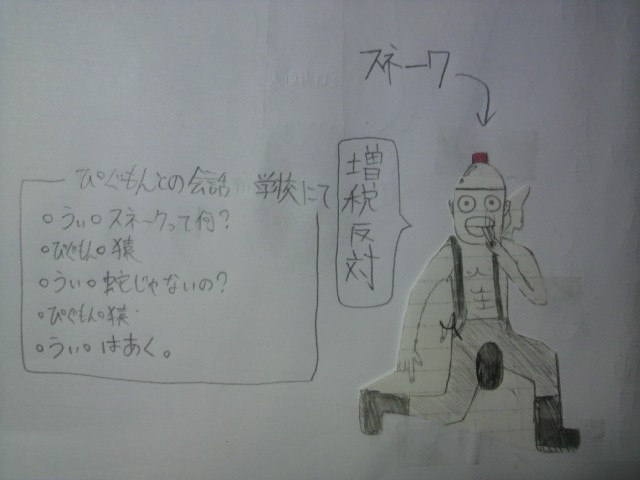 スネーク
増税反対
ぴぐもんとの会話 学校にて
○うぃ○スネークって何?
○ぴぐもん○猿
○うぃ○蛇じゃないの?
○ぴぐもん○猿
○うぃ○はあく。
人生